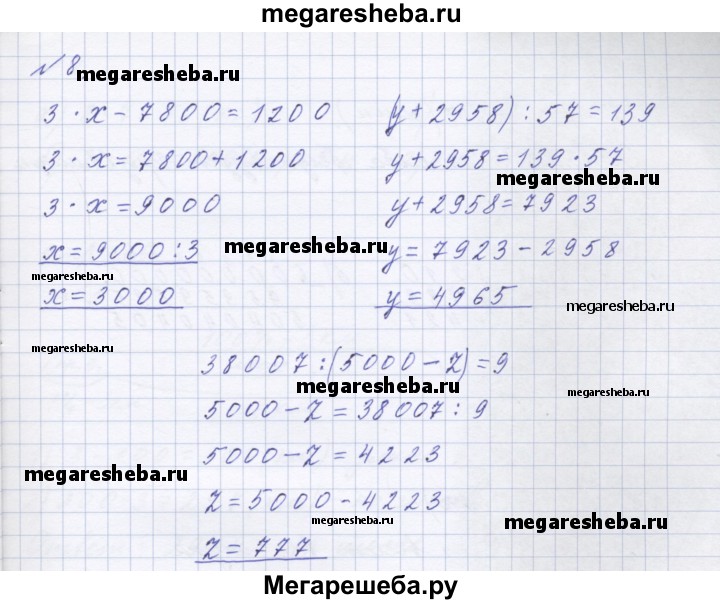 megaresheba.ru
№ 8
megaresheba.ru
3 · x - 7800 = 1200
3 · x = 7800 + 1200
3 · x = 9000
x = 9000 : 3
x = 3000
(y + 2958) : 57 = 139
y + 2958 = 139 · 57
megaresheba.ru
y + 2958 = 7923
megaresheba.ru
y = 7923 - 2958
megaresheba.ru
y = 4965
megaresheba.ru
megaresheba.ru
38007 : (5000 - z) = 9
megaresheba.ru
megaresheba.ru
5000 - z = 38007 : 9
5000 - z = 4223
megaresheba.ru
z = 5000 - 4223
megaresheba.ru
megaresheba.ru
z = 777
Мегарешеба.ру